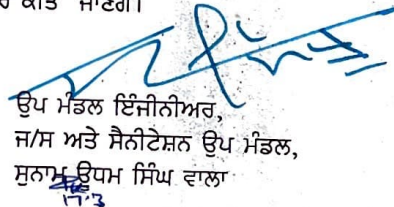 ਕੀਤੇ ਜਾਣਗੇ।
ਉਪ ਮੰਡਲ ਇੰਜੀਨੀਅਰ,
ਜ/ਸ ਅਤੇ ਸੈਨੀਟੇਸ਼ਨ ਉਪ ਮੰਡਲ,
ਸੁਨਾਮ ਊਧਮ ਸਿੰਘ ਵਾਲਾ
17.3